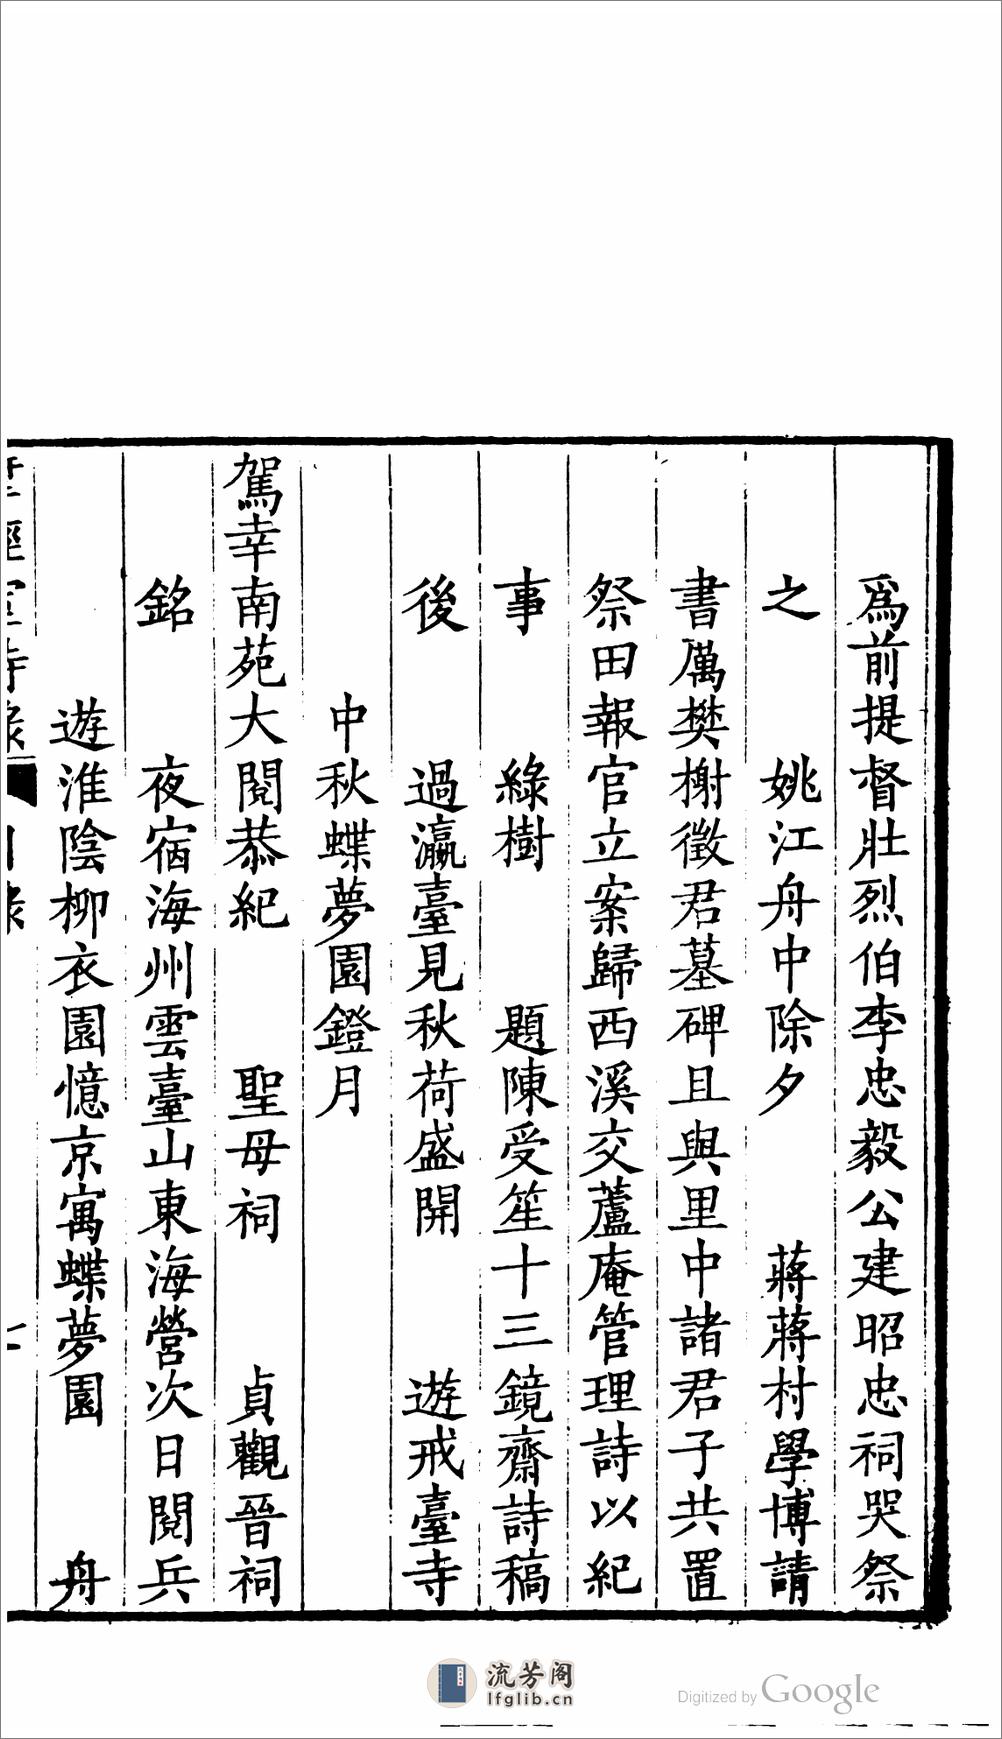 為前提督壯烈伯李忠毅公建昭忠祠哭祭
之　姚江舟中除夕　蔣蔣村學博請
書厲樊榭徵君墓碑且與里中諸君子共置
祭田報官立案歸西溪交蘆庵管理詩以紀
事　綠樹　題陳受笙十三鏡齋詩稿
後　過瀛臺見秋荷盛開　遊戒臺寺
中秋蝶夢園鐙月
駕幸南苑大閱恭紀　聖母祠　貞觀晉祠
銘　夜宿海州雲臺山東海營次日閱兵
遊淮陰柳衣園憶京寓蝶夢園　舟
流芳阁
lfglib.cn
Digitized by Google